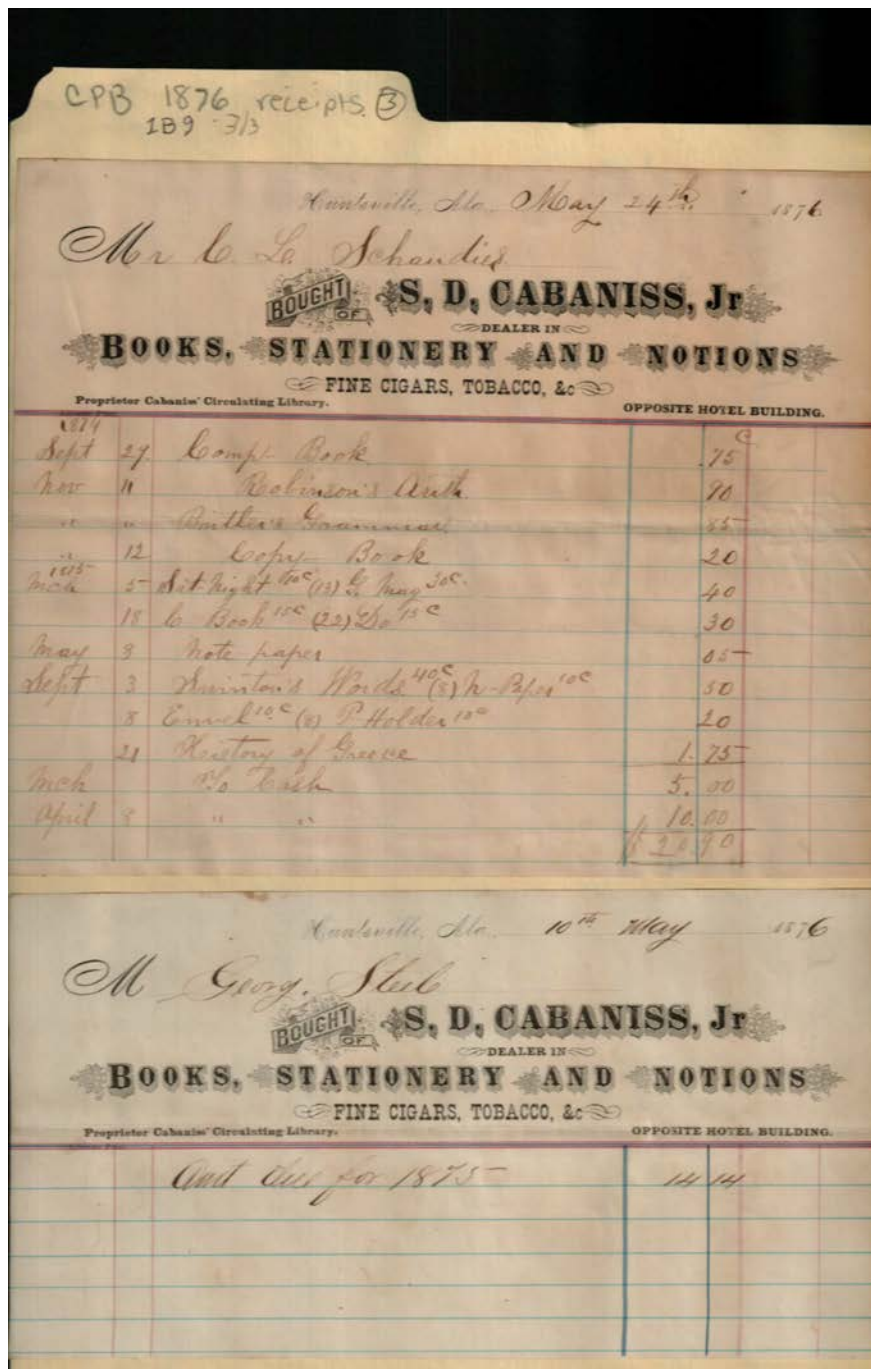 CPB 1876 receipts. 3
1B9 3/3
Huntsville, Ala. May 24th 1876
Mr C. L.
BOUGHT OF S, D, CABANISS, Jr
DEALER IN
BOOKS, STATIONERY AND NOTIONS
FINE CIGARS, TOBACCO, &c
Proprietor Cabaniss' Circulating Library. OPPOSITE HOTEL BUILDING.
1874 C
Sept 27. Comp. Book .75
Nov 11 Robinson's Arith. 90
" " Butler's Grammar 85
" 12 Copy Book 20
1875
Mch 5 Sat Night 10c (13) G. May 30c. 40
18 C Book 15c (22) Do 15c 30
May 3 Note paper 05
Sept 3 Swinton's Words 40c (8) N-Paper 10c 50
8 Envel 10c (8) P. Holder 10c 20
21 History of Greece 1. 75
Mch To Cash 5. 00
April 8 " " 10. 00
$ 20.90
Huntsville, Ala. 10th May 1876
M Georg. Steel
BOUGHT OF S, D, CABANISS, Jr
DEALER IN
BOOKS, STATIONERY AND NOTIONS
FINE CIGARS, TOBACCO, &c
Proprietor Cabaniss' Circulating Library. OPPOSITE HOTEL BUILDING.
Amt due for 1875 14 14